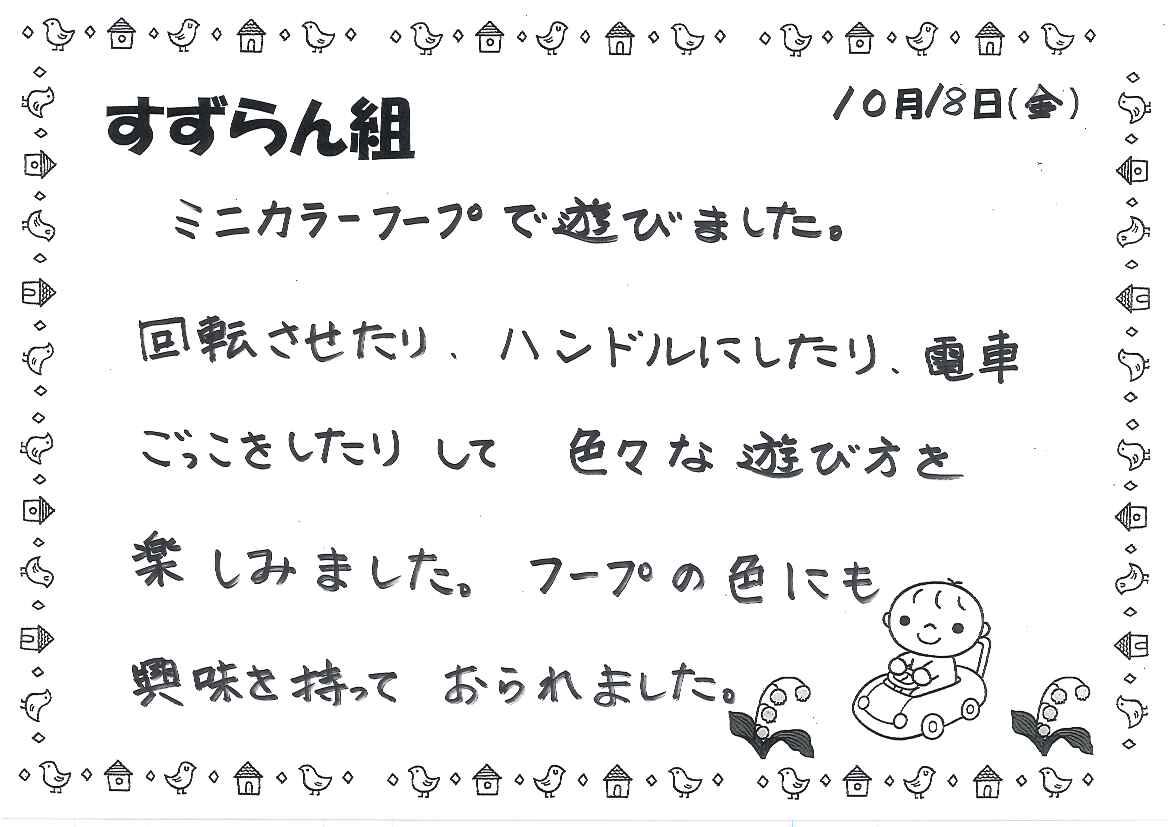 すずらん組
10月18日(金)
ミニカラーフープで遊びました。
回転させたり、ハンドルにしたり、電車
ごっこをしたりして 色々な遊び方を
楽しみました。フープの色にも
興味を持って おられました。